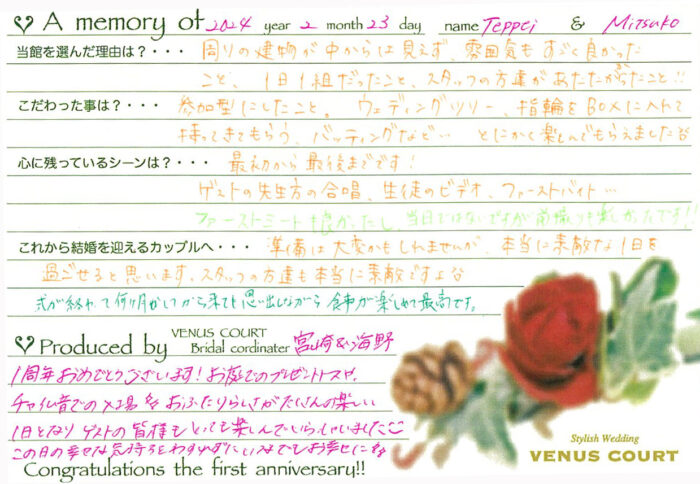 A memory of 2024 year 2 month 23 day name Teppei & Mitsuko
当館を選んだ理由は？・・・ 周りの建物が中からは見えず、雰囲気もすごく良かった
こと、1日1組だったこと、スタッフの方達があたたかったこと!!
こだわった事は？・・・ 参加型にしたこと。ウェディングツリー、指輪をBOXに入れて
持ってきてもらう、バッティングなど… とにかく楽しんでもらえました
心に残っているシーンは？・・・ 最初から最後までです！
ゲストの先生方の合唱、生徒のビデオ、ファーストバイト…
ファーストミートも良かったし、当日ではないですが前撮りも楽しかったです!!
これから結婚を迎えるカップルへ・・・ 準備は大変かもしれませんが、本当に素敵な1日を
過ごせると思います。スタッフの方達も本当に素敵ですよ
式が終わって何ヶ月かしてから来ても思い出しながら食事が楽しめて最高です。
Produced by VENUS COURT
Bridal cordinater 宮崎&海野
1周年おめでとうございます！お庭でのブーケプルズや、
チャイム音での入場など おふたりらしさがたくさんの楽しい
1日となり ゲストの皆様もとっても楽しんでいらっしゃいました
この日の幸せな気持ちをわすれずに いつまでもお幸せに
Congratulations the first anniversary!!
Stylish Wedding
VENUS COURT